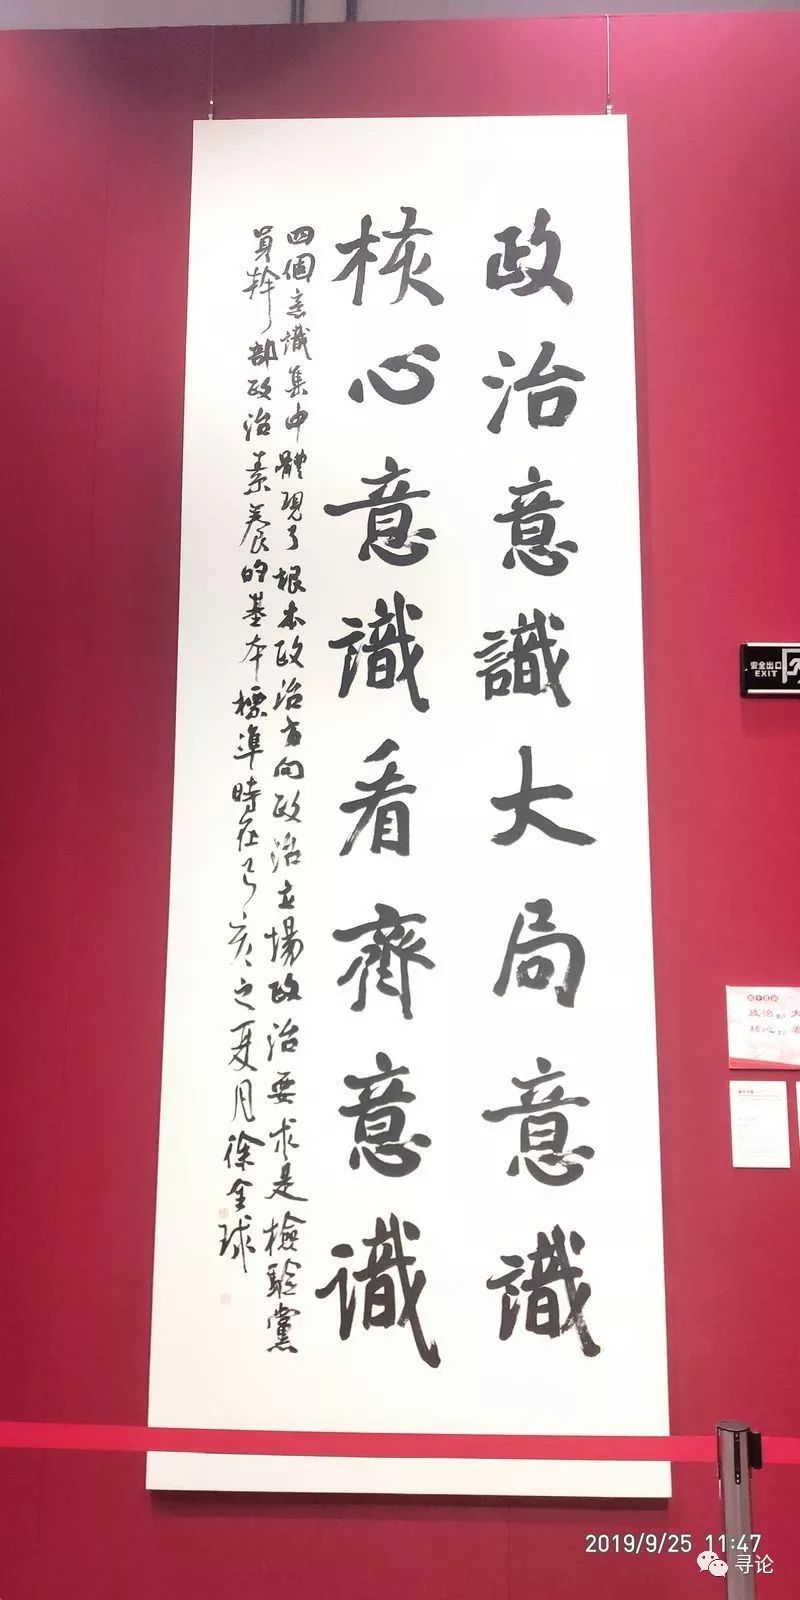 政治意識大局意識
核心意識看齊意識
四個意識集中體現了根本政治方向政治立場政治要求是檢驗黨
員幹部政治素養的基本標準時在己亥之夏月徐金球
安全出口
EXIT
政治
核心
2019/9/25 11:47
寻论